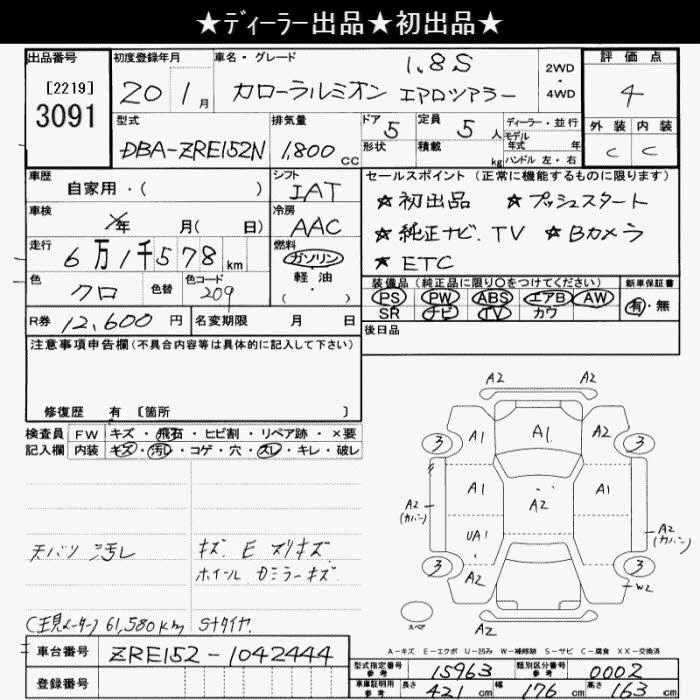 ★ディーラー出品★初出品★
出品番号 初度登録年月 車名・グレード 評価点
[2219] 3091
20 1月 カローラルミオン 1.8S エアロツアラー 2WD・4WD 4
型式 排気量 ドア 5 定員 5人 ディーラー・並行 外装 内装
DBA-ZRE152N 1,800cc 形状 積載 kg モデル年式 年 ハンドル 左・右 C C
車歴 自家用・( ) シフト IAT セールスポイント(正常に機能するものに限ります)
車検 年 月( 日) 冷房 AAC ★初出品 ★プッシュスタート
★純正ナビ.TV ★Bカメラ
走行 6万1千578km 燃料 ガソリン・軽油・( ) ★ETC
色 クロ 色替 色コード 209 装備品(純正品に限り○をつけてください) 新車保証書
PS PW ABS エアB AW 有・無
SR ナビ TV カワ
R券 12,600円 名変期限 月 日 後日品
注意事項申告欄(不具合内容等は具体的に記入して下さい)
修復歴 有 [箇所 ]
検査員記入欄 FW キズ・飛石・ヒビ割・リペア跡・×要
内装 キズ・汚レ・コゲ・穴・スレ・キレ・破レ
A2 A2
3 A1 A1 A2 3
A1 A1
A2 (カバー) A2 A2 (カバー)
UA1
3 A2 3
W2
スペア A2 A2
天バリ 汚レ キズ E スリキズ
ホイール ドミラーキズ
(現メーター) 61,580km Sタイヤ
A-キズ E-エクボ U-凹み W-補修跡 S-サビ C-腐食 XX-交換済
車台番号 ZRE152-1042444
登録番号
型式指定番号参考 15963 類別区分番号参考 0002
車庫証明用参考 長さ 421cm 幅 176cm 高さ 163cm